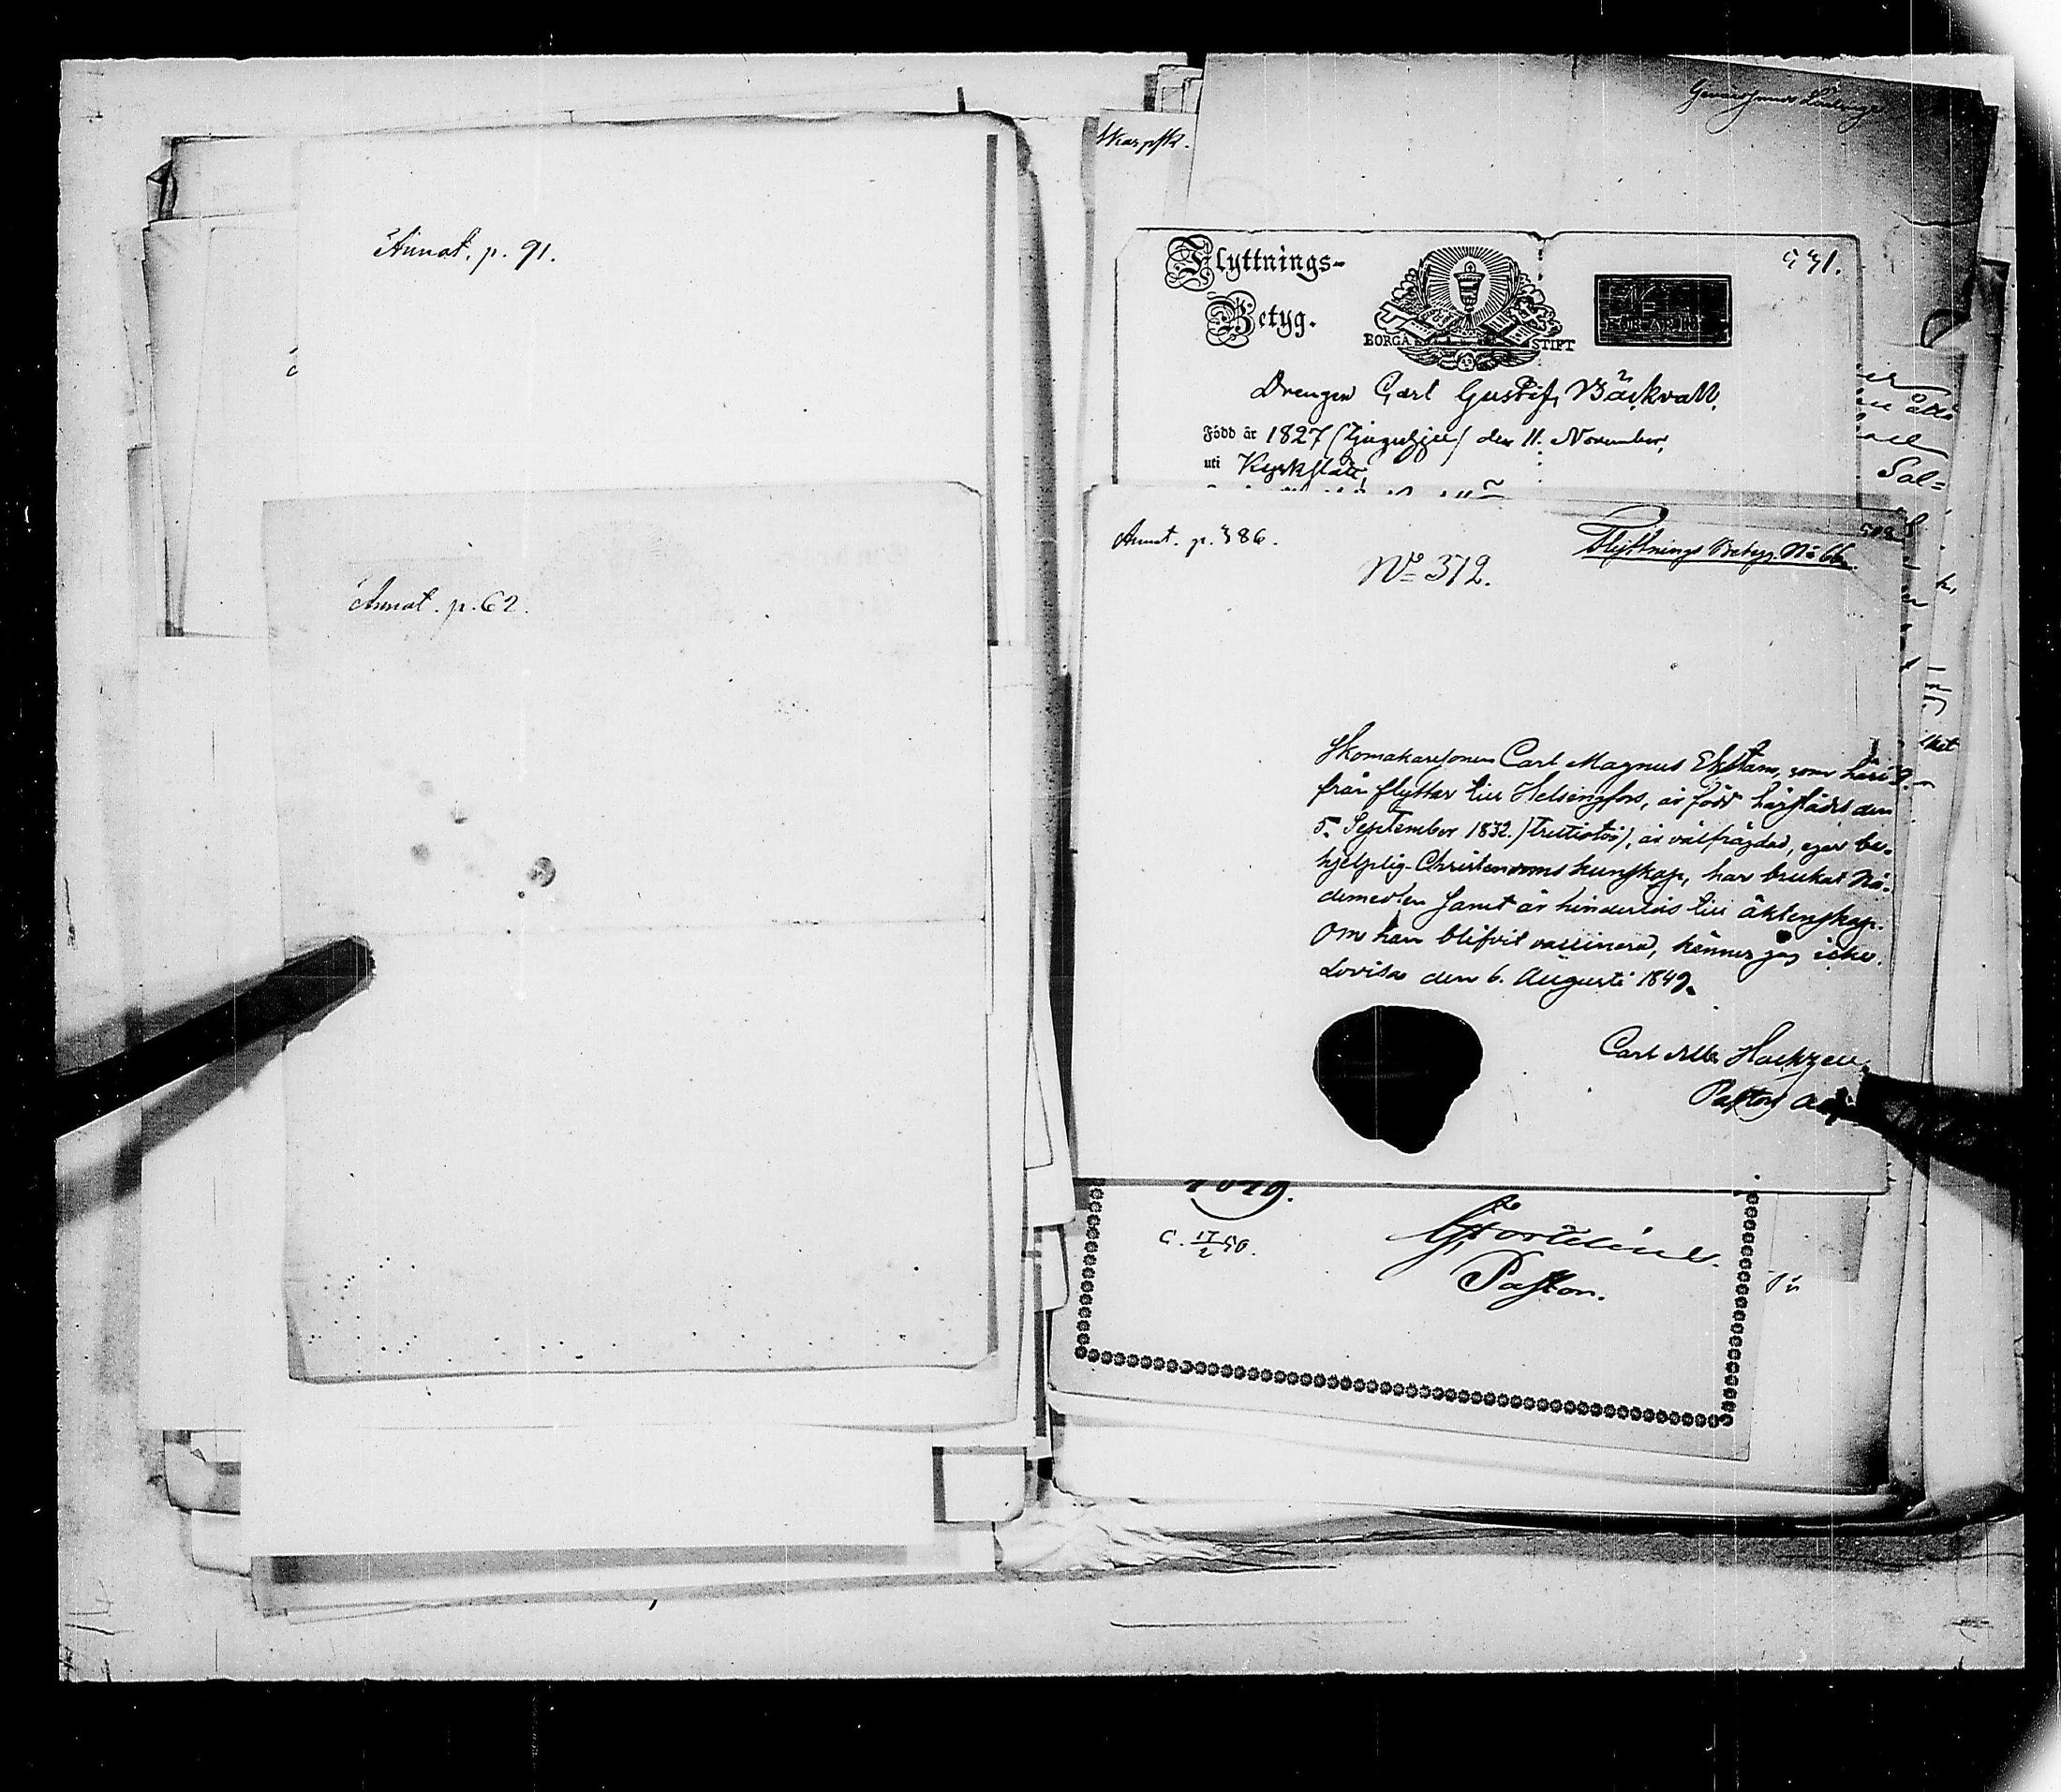 Annot. p. 91.
Annot. p. 62.
Skarpsk.
Flyttnings-
Betyg.
BORGÅ STIFT
Drengen Carl Gustaf Bäckvall,
Född år 1827 (tjugusju) den 11. November,
uti Kyrkslätt,
Annot. p. 386.
No 372.
Flyttnings Betyg. No 66.
Skomakaresonen Carl Magnus Ekstam, som häri-
från flyttar till Helsingfors, är född härstädes den
5. September 1832. (trettiotvå), är välfrägdad, eger be-
hjelplig Christendoms kunskap, har brukat Nå-
demedlen samt är hinderlös till äktenskap.
Om han blifvit vaccinerad, känner jag icke.
Lovisa den 6. Augusti 1849.
Carl
Pastor
C. 17/2 50.
Pastor.